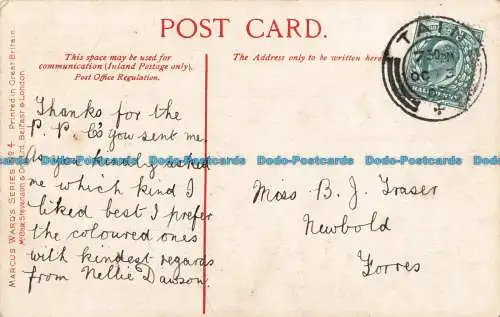 POST CARD.
This space may be used for
communication (Inland Postage only).
Post Office Regulation.
The Address only to be written here
TAIN
7 30 PM
OC
HALFPENNY
Thanks for the
P. P. C's you sent me.
As you kindly asked
me which kind I
liked best I prefer
the coloured ones
with kindest regards
from Nellie Dawson.
Miss B. J. Fraser
Newbold
Forres
MARCUS WARD'S SERIES No 4. Printed in Great Britain.
McCaw, Stevenson & Orr, Ltd. Belfast & London.
Dodo-Postcards Dodo-Postcards Dodo-Postcards Dodo-Postcards Dodo-Postcards